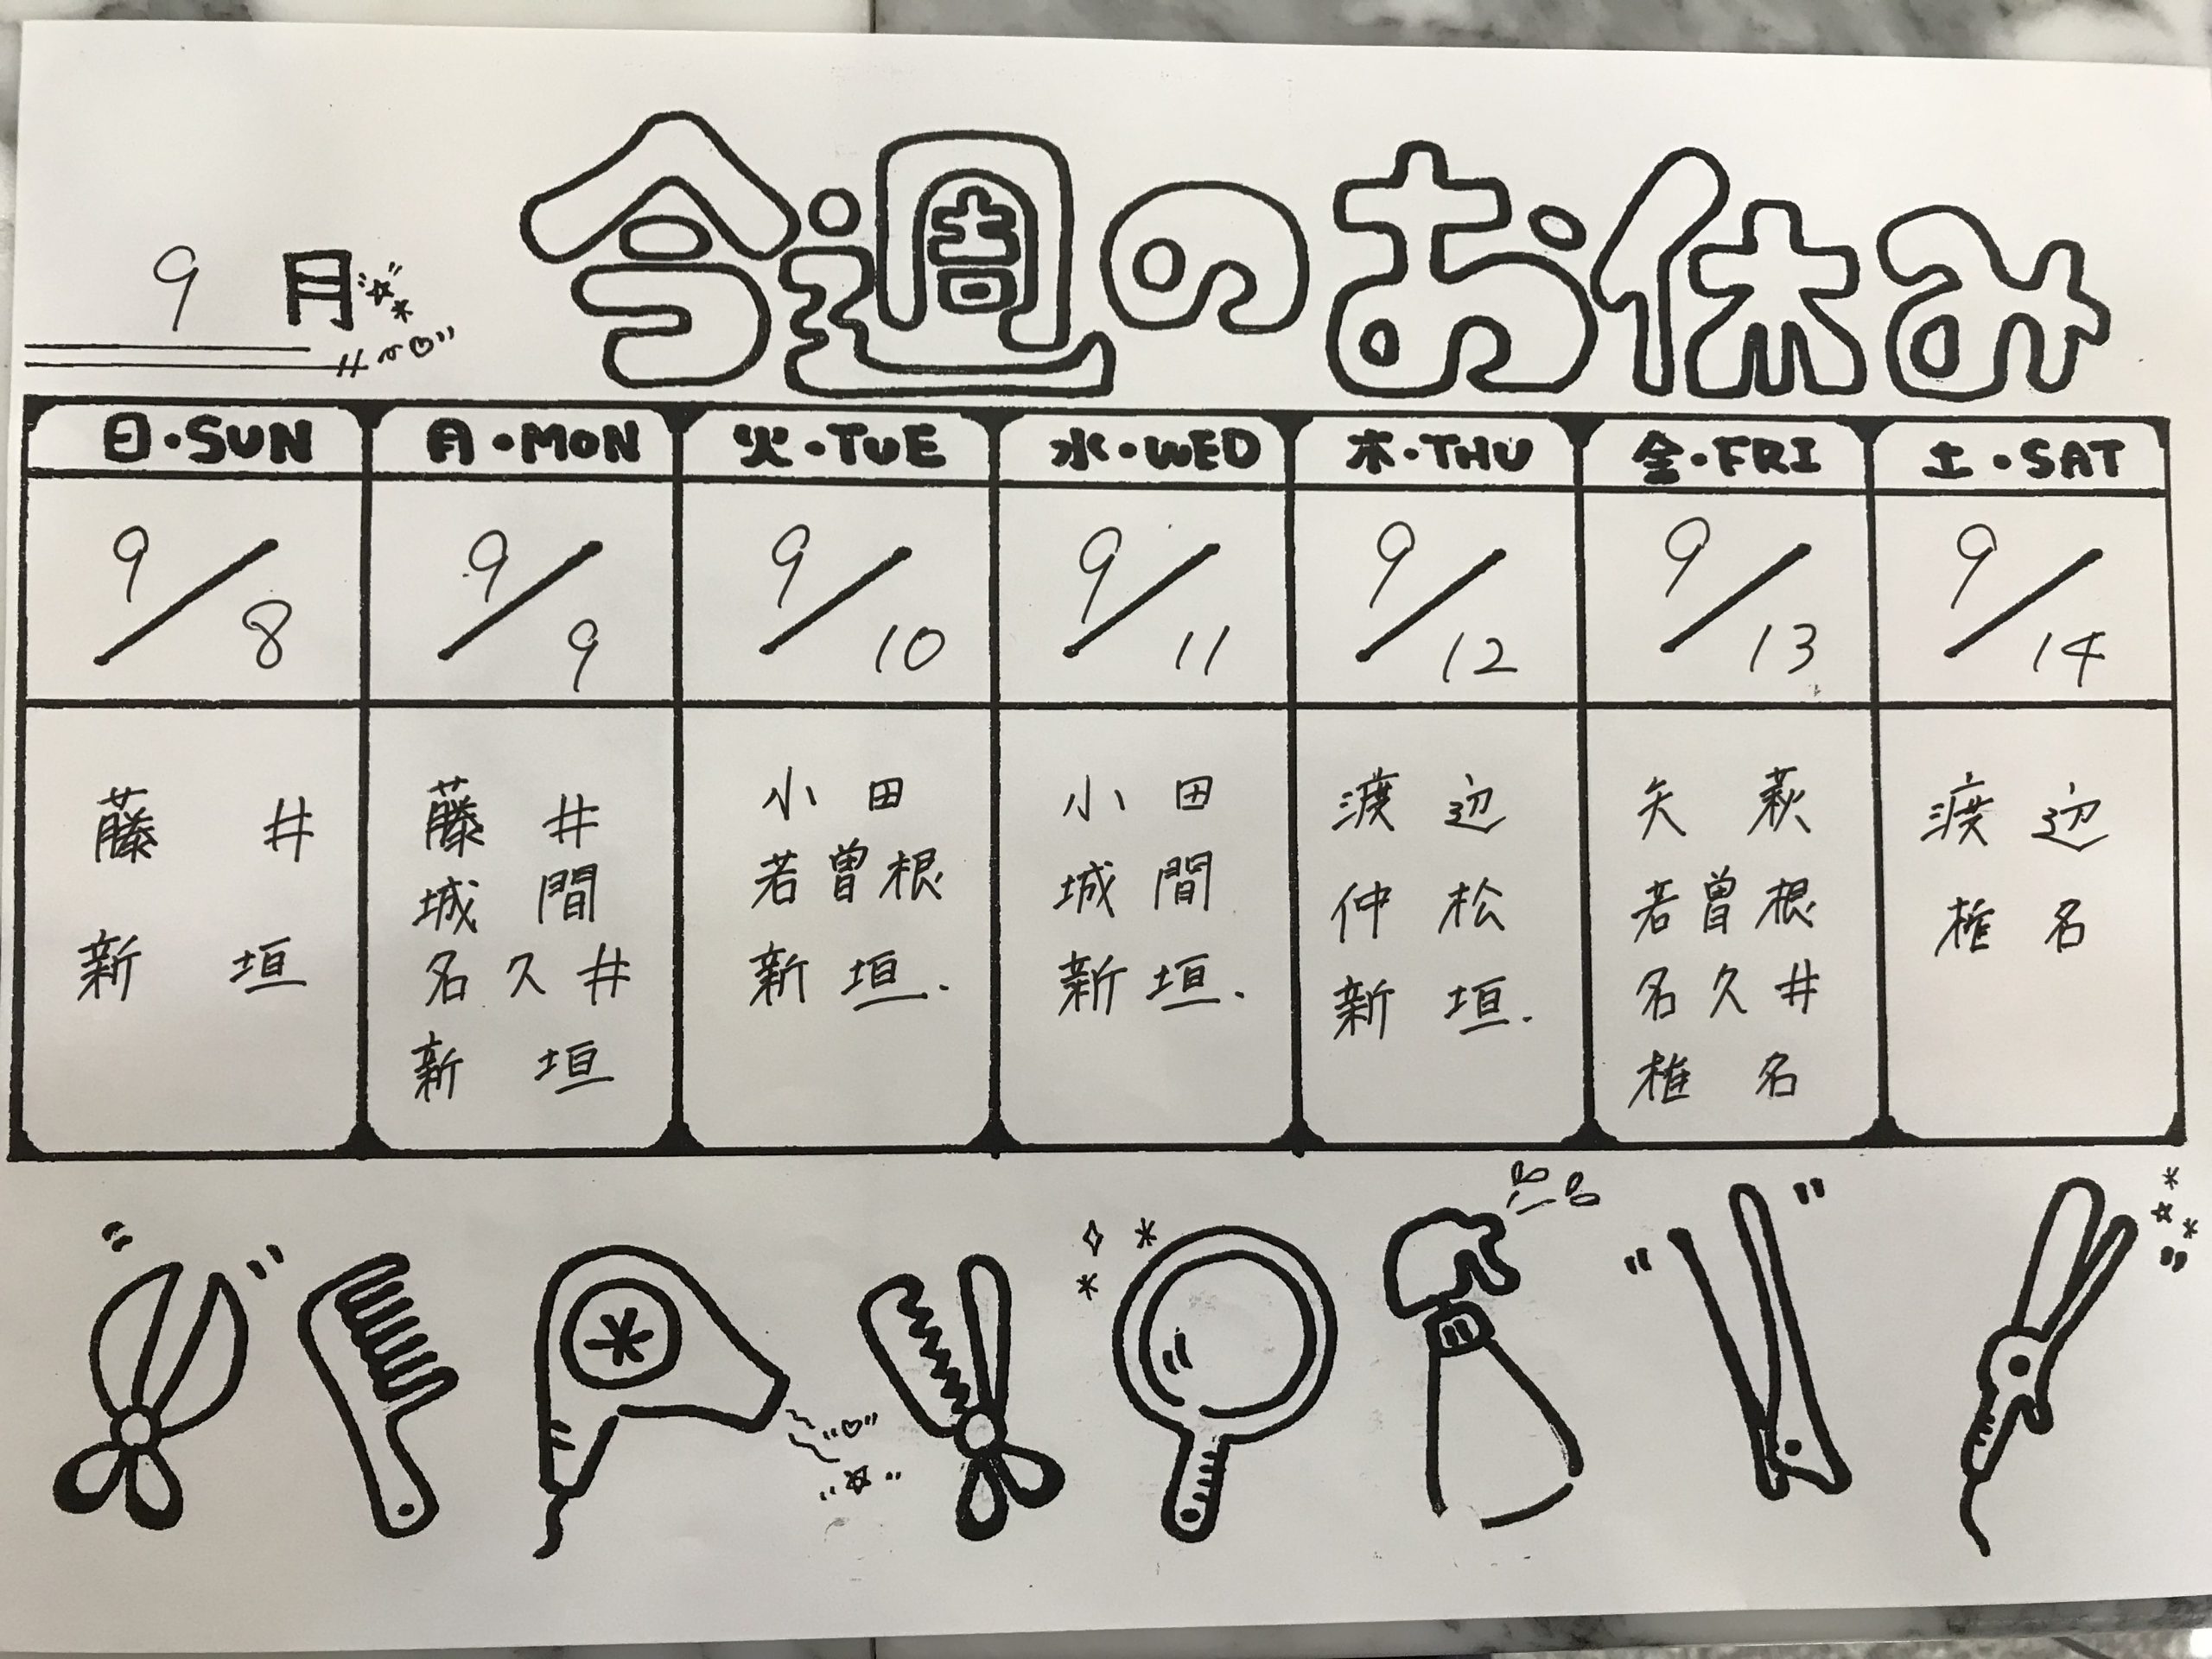 9月
今週のお休み
日・SUN 月・MON 火・TUE 水・WED 木・THU 金・FRI 土・SAT
9/8 9/9 9/10 9/11 9/12 9/13 9/14
藤井
新垣
藤井
城間
名久井
新垣
小田
若曽根
新垣.
小田
城間
新垣.
渡辺
仲松
新垣.
矢萩
若曽根
名久井
椎名
渡辺
椎名